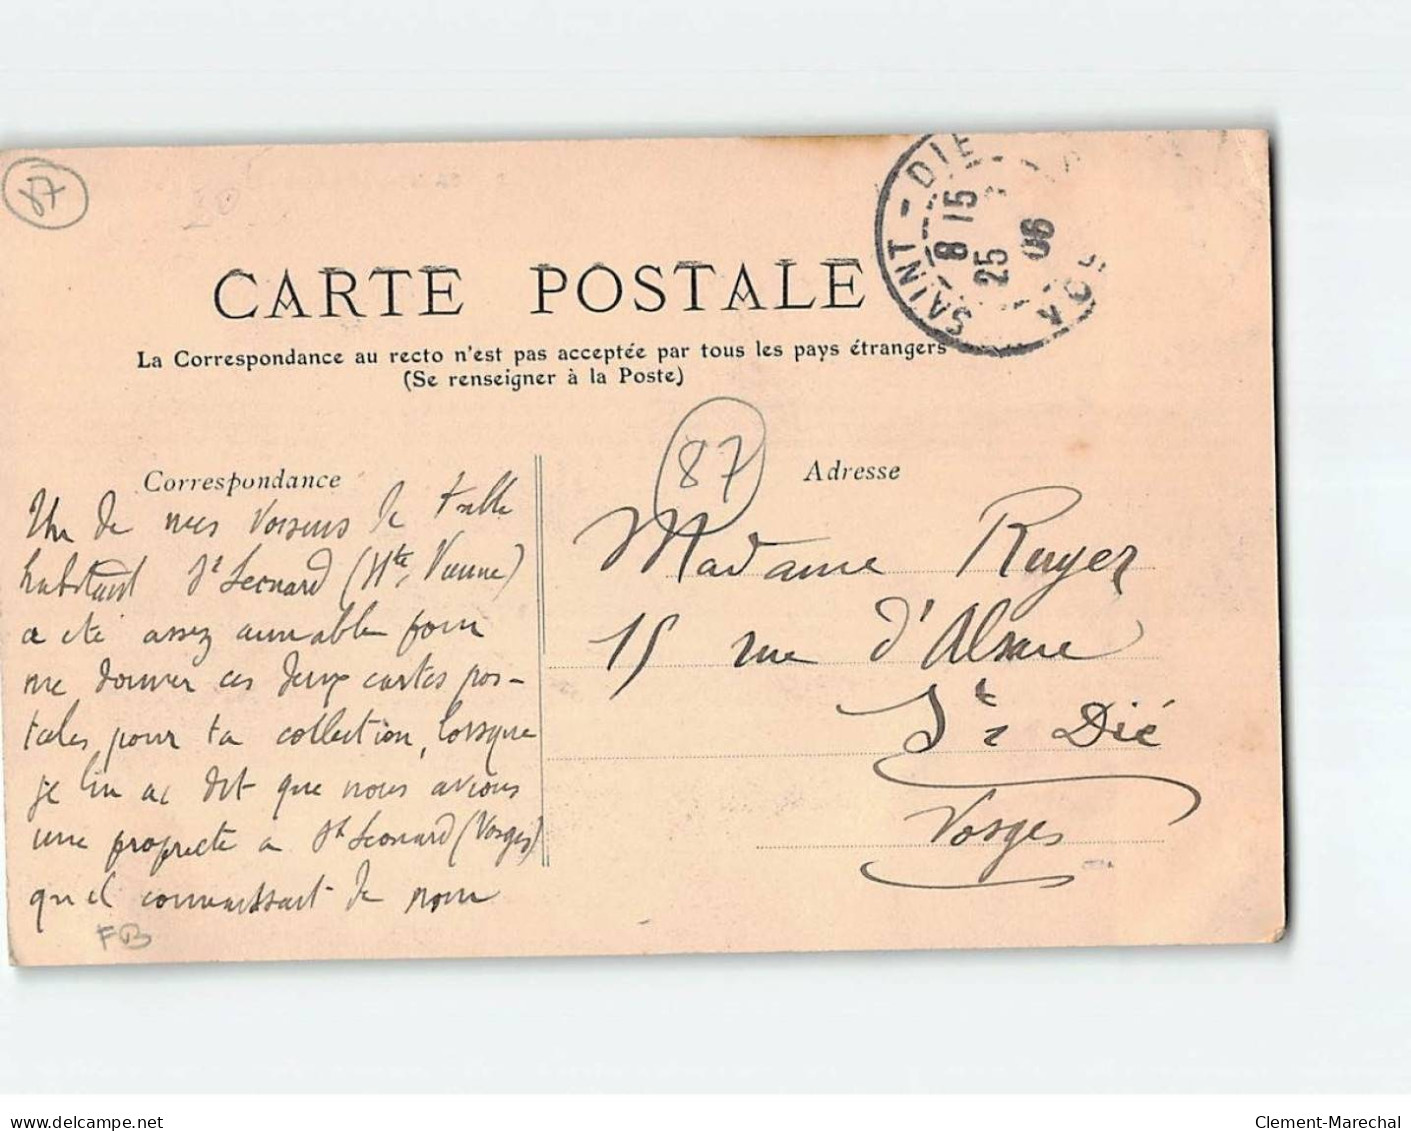 87
SAINT-DIE
8 15
25
06
VOS
CARTE POSTALE
La Correspondance au recto n'est pas acceptée par tous les pays étrangers
(Se renseigner à la Poste)
Correspondance
Un de mes voisins de table
habitant St Leonard (Hte Vienne)
a été assez aimable pour
me donner ces deux cartes pos-
tales pour ta collection, lorsque
je lui ai dit que nous avions
une propriete a St Leonard (Vosges)
qu'il connaissait de nom
FB
87
Adresse
Madame Ruyer
15 rue d'Alsace
St Dié
Vosges
www.delcampe.net
Clement-Marechal